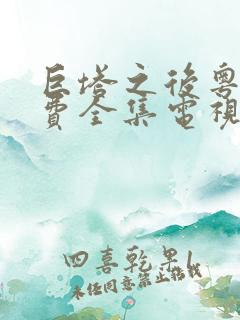 巨塔之後粵
費全集電視
四喜乾果1
未经同意禁止搭载